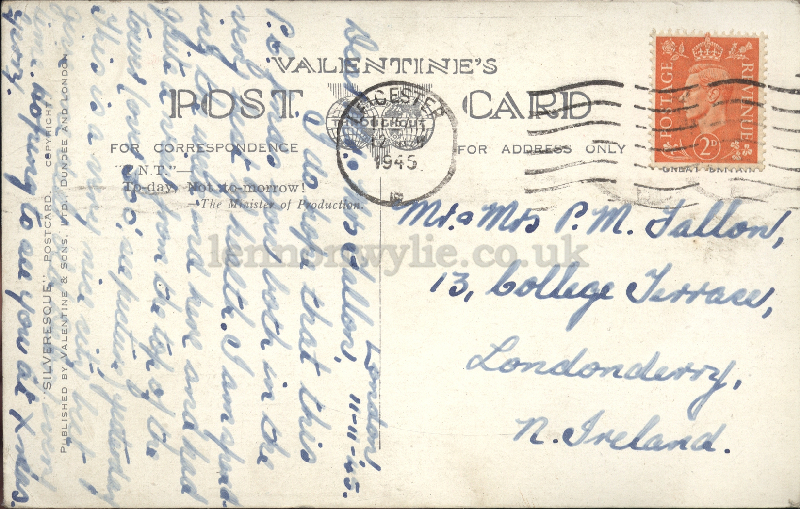 VALENTINE'S
POST CARD
FOR CORRESPONDENCE
FOR ADDRESS ONLY
"T.N.T."—
To-day, Not to-morrow!
—The Minister of Production.
"SILVERESQUE" POSTCARD. COPYRIGHT
PUBLISHED BY VALENTINE & SONS, LTD., DUNDEE AND LONDON
LEICESTER
1945
POSTAGE REVENUE
2D
GREAT BRITAIN
lennonwylie.co.uk
Mr. & Mrs P. M. Fallon,
13, College Terrace,
Londonderry,
N. Ireland.
London,
11-11-45.
Dear Mr & Mrs Fallon,
I do hope that this
P.C. finds you both in the
very best of health. I am spend
ing the week-end here and had
quite a view from the top of the
tower
This is a very nice city but
hoping to see you at Xmas.
Gerry.